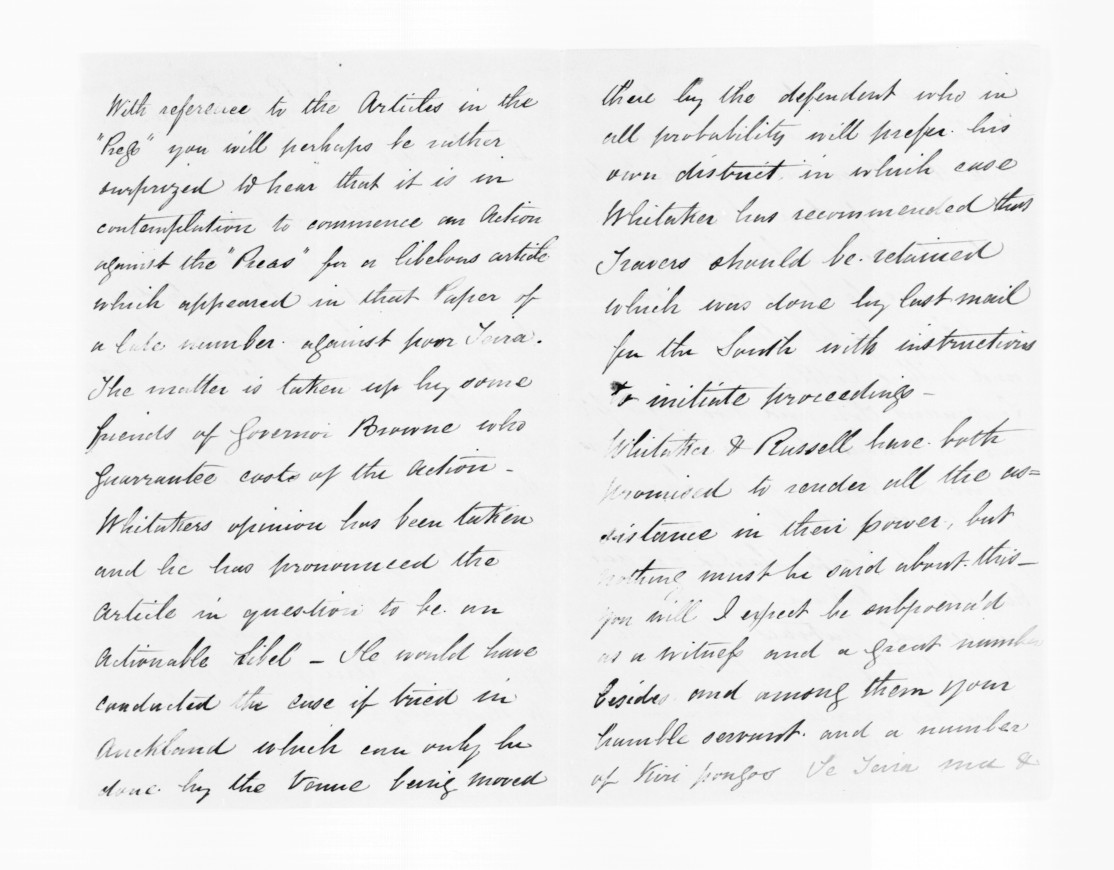 With reference to the Articles in the
"Press" you will perhaps be rather
surprized to hear that it is in
contemplation to commence an Action
against the "Press" for a libelous article
which appeared in that Paper of
a late number against poor Teira.
The matter is taken up by some
friends of Governor Browne who
guarrantee costs of the action -
Whitakers opinion has been taken
and he has pronounced the
article in question to be an
actionable libel - He would have
conducted the case if tried in
Auckland which can only be
done by the Venue being moved
there by the defendent who in
all probability will prefer his
own district in which case
Whitaker has recommended that
Travers should be retained
which was done by last mail
for the South with instructions
to initiate proceedings -
Whitaker & Russell have both
promised to render all the as=
sistance in their power, but
nothing must be said about this -
you will I expect be subpoena'd
as a witness and a great number
besides and among them your
humble servant and a number
of Kiri pongos Te Teira ma &